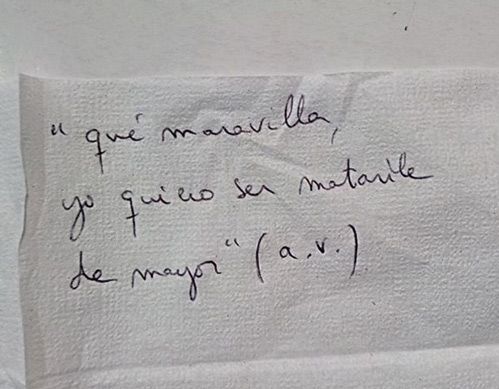 "qué maravilla,
yo quiero ser matarile
de mayor" (a.v.)